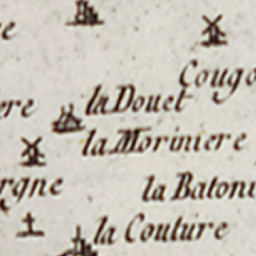 e
Cougo
ere la Douet
la Moriniere
rgne la Batoni
la Couture